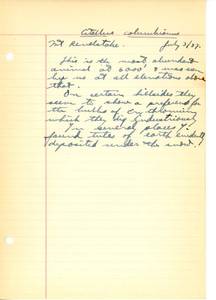 Citellus columbianus
Mt Revelstoke. July 3/37.
This is the most abundant
animal at 6000' & was seen
by us at all elevations above
that.
On certain hillsides they
seem to show a preference for
the bulbs of Erythronium
which they dig industriously
In several places I
found tubes of earth evidently
deposited under the snow.